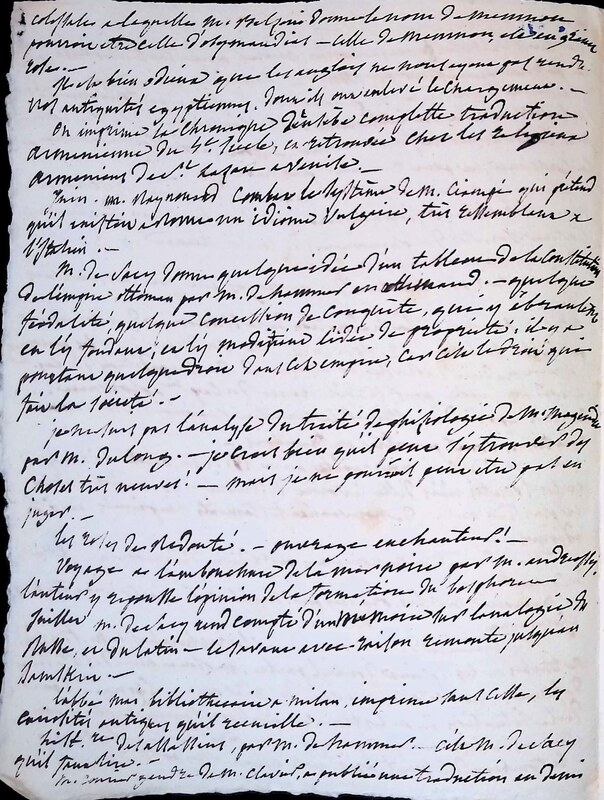 colossale a laquelle m. Belzoni donne le nom de memnon
pourroit etre celle d'osymandias - celle de memnon
rose. -
Il est bien odieux que les anglois ne nous ayent pas rendu
nos antiquités egyptiennes. dont ils ont enlevé le chargement. -
On imprime la chronique d'Eusèbe complette traduction
armenienne du 4e. siecle, et retrouvée chez les religieux
armeniens de St. Lazare a Venise. -
Juin. m. Raynouard combat le système de M. qui prétend
qu'il existoit a Rome un idiome vulgaire, très ressemblant a
l'italien. -
M. de Sacy donne quelque idée d'un tableau de la Constitution
de l'empire ottoman par M. de hammer en allemand. - quelque
féodalité, quelque concession de conquête, qui y
en s'y fondant, en s'y modifiant l'idée de propriété; il y a
pourtant quelque droit dans cet empire, car c'est le droit qui
fait la société. -
je ne suis pas l'analyse du traité de phisiologie de M. magendie
par M. dulong - je crois bien qu'il peut s'y trouver des
choses très neuves! - mais je ne pourrois peut etre pas en
juger. -
les roses de Redouté. - ouvrage enchanteur! -
Voyage a l'embouchure de la mer noire par M. andreossy
l'auteur y repousse l'opinion de la formation du bosphore
Juillet m. de Sacy rend compte d'un mémoire sur l'analogie du
Russe, et du latin - le savant avec raison remonte jusqu'au
Sanskrit. -
l'abbé mai, bibliothecaire a milan, imprime sans cesse, les
curiosités antiques qu'il recueille. -
hist. re des assassins, par M. de hammer. - c'est M. de Sacy
qu'il faut lire. -
M. gendre de M. Clavier, a publié une traduction